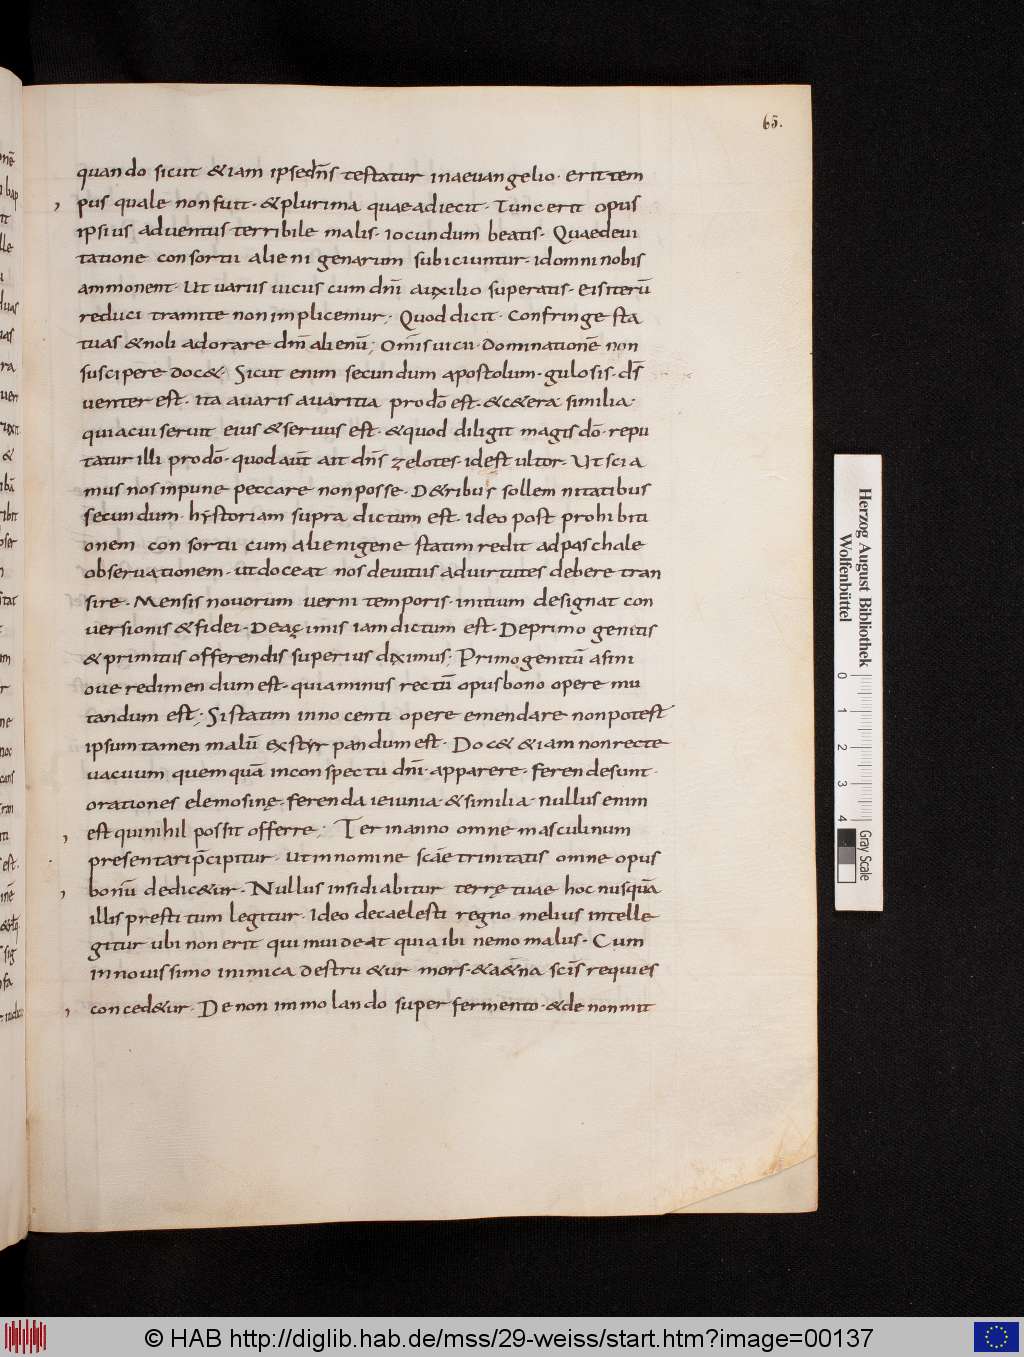 65.
quando sicut &iam ipsedn̄s testatur inaeuangelio· erit tem
pus quale nonfuit· &plurima quaeadiecit· Tunc erit opus
ipsius aduentus terribile malis· iocundum beatis· Quaedeui
tatione consortii alienigenarum subiciuntur· idomninobis
ammonent· Ut uariis uicus cum dn̄i auxilio superatis· eisiterū
reduci tramite nonimplicemur; Quod dicit· Confringe sta
tuas &noli adorare dm̄ alienū; Om̄is uicii· dominationē non
suscipere doc&· Sicut enim secundum apostolum· gulosis· ds̄
uenter est· ita auaris auaritia prodō est· &c&era similia·
quiacui seruit eius &seruus est· &quod diligit magis dō· repu
tatur illi prodō· quodaut̄ ait dn̄s zelotes· idest ultor· Ut scia
mus nos inpune peccare nonposse· D&ribus sollemnitatibus
secundum· hystoriam supra dictum est· ideo post prohibiti
onem consortii cum alienigene statim redit adpaschale
obseruationem· utdoceat nos deuitiis aduirtutes debere tran
sire· Mensis nouorum uerni temporis· initium designat con
uersionis &fidei· Deaçimis iamdictum est· Deprimogenitis
&primitiis offerendis superius diximus; Primogenitū asini
oue redimendumest· quiaminus rectū opusbono opere mu
tandum est; Sistatim innocenti opere emendare nonpotest
ipsumtamen malū exstyrpandumest· Doc& &iam nonrecte
uacuum quemquā inconspectu dn̄i· apparere· ferendesunt·
orationes elemosinę· ferenda ieiunia· &similia nullus enim
est quinihil possit offerre; Ter inanno omne masculinum
presentarip̄cipitur· utinnomine scāe trinitatis omne opus
bonū dedic&ur· Nullus insidiabitur terrę tuae hoc nusquā
illis prestitum legitur· Ideo decaelesti regno melius intelle
gitur ubi nonerit qui inuideat quia ibi nemo malus· Cum
innouissimo inimica destru&ur mors· &a&n̄a sci̅s requies
conced&ur· De non immolando super fermento· &de nonmit
Herzog August Bibliothek
Wolfenbüttel
0 1 2 3 4
Gray Scale
© HAB http://diglib.hab.de/mss/29-weiss/start.htm?image=00137